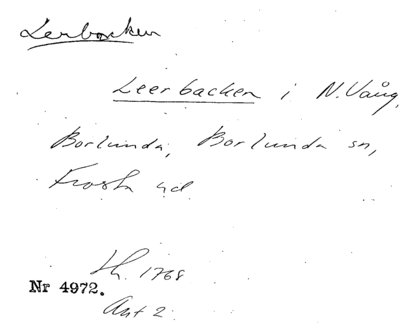 Lerbacken
Leerbacken i N. Vång,
Borlunda, Borlunda sn,
Frosta hd
Lh. 1768
Nr 4972.
Akt 2